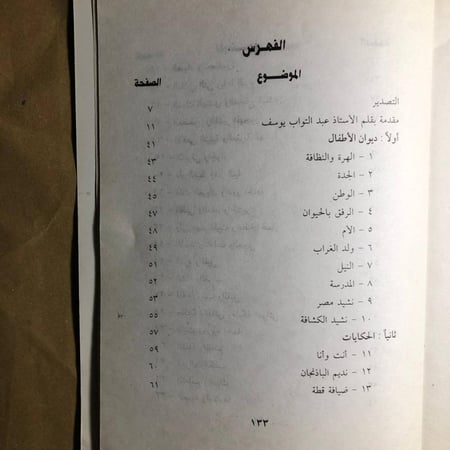 الفهرس
الموضوع الصفحة
التصدير ٧
مقدمة بقلم الأستاذ عبد التواب يوسف ١١
أولاً : ديوان الأطفال ٤١
١ - الهرة والنظافة ٤٣
٢ - الجدة ٤٤
٣ - الوطن ٤٥
٤ - الرفق بالحيوان ٤٧
٥ - الأم ٤٨
٦ - ولد الغراب ٤٩
٧ - النيل ٥١
٨ - المدرسة ٥٢
٩ - نشيد مصر ٥٣
١٠ - نشيد الكشافة ٥٥
ثانياً : الحكايات ٥٧
١١ - أنت وأنا ٥٩
١٢ - نديم الباذنجان ٦٠
١٣ - ضيافة قطة ٦١
١٣٣